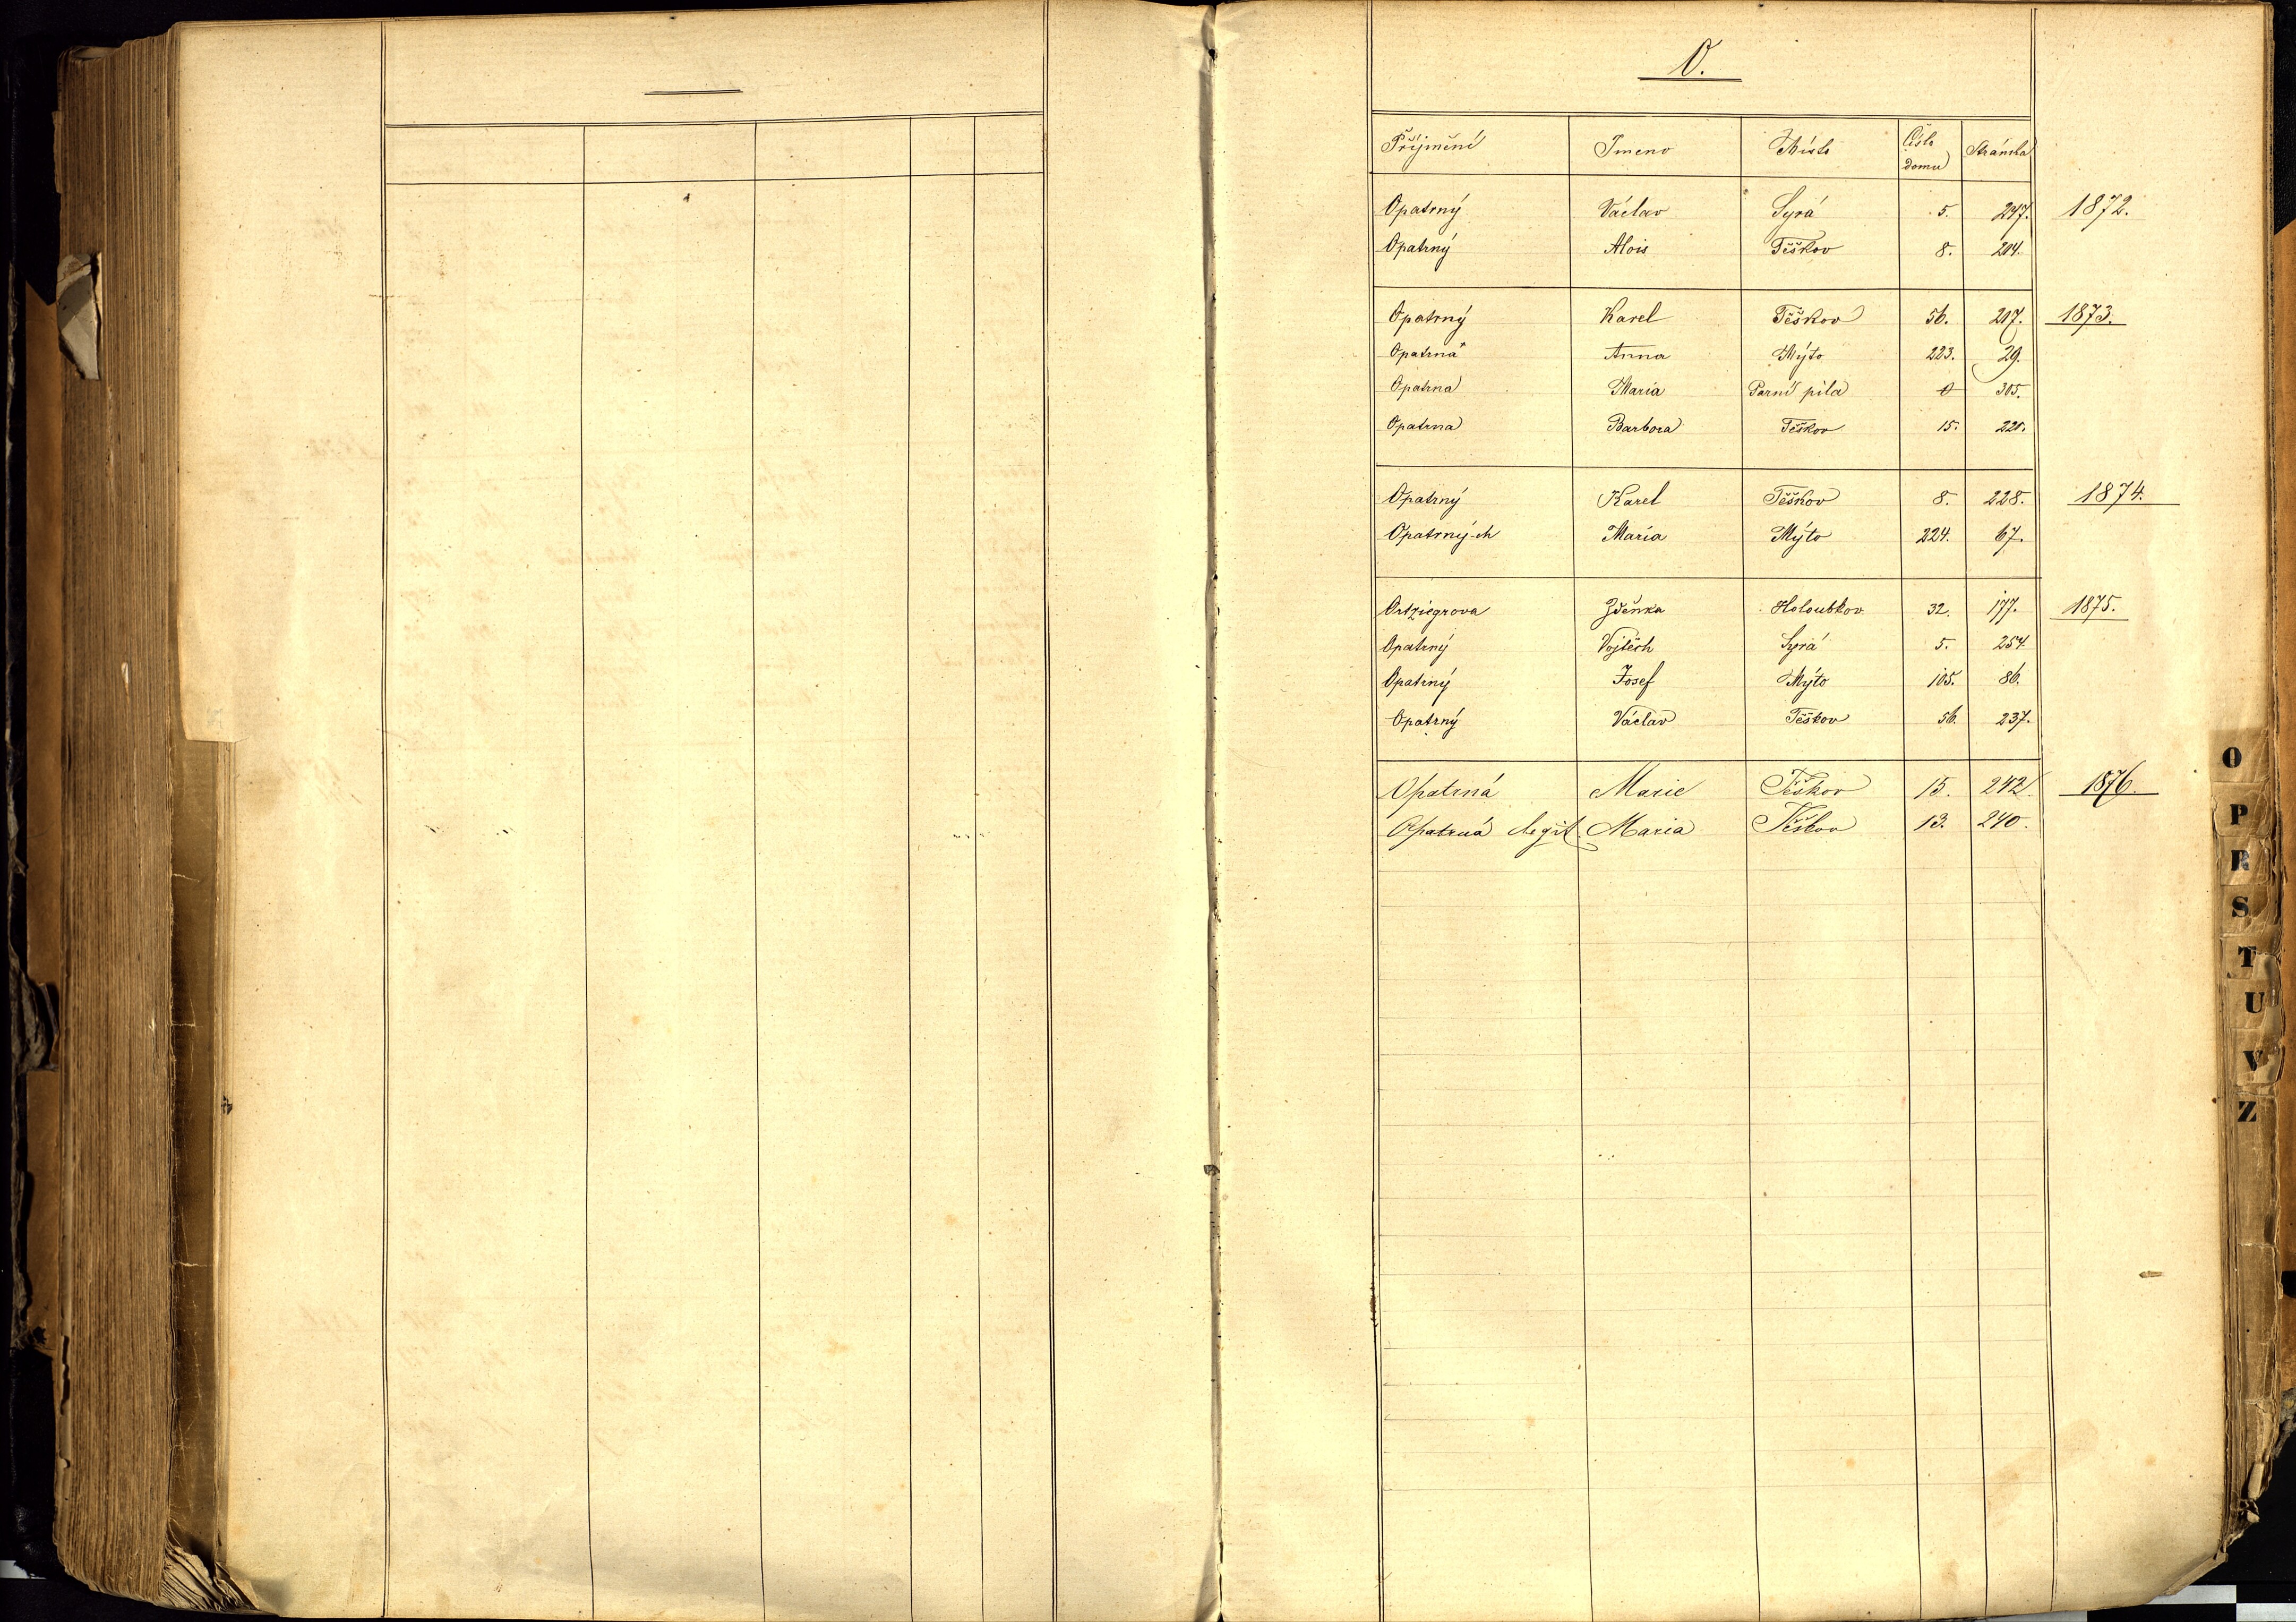 O.
Příjmění Jmeno Místo Číslo domu Stránka
Opatrný Václav Syrá 5. 247. 1872.
Opatrný Alois Těškov 8. 204.
Opatrný Karel Těškov 56. 217. 1873.
Opatrná Anna Mýto 223. 29.
Opatrna Maria Parní pila 0 305.
Opatrna Barbora Těškov 15. 221.
Opatrný Karel Těškov 8. 228. 1874.
Opatrný-ch Maria Mýto 224. 67.
Zděnka Holoubkov 32. 177. 1875.
Opatrný Vojtěch Syrá 5. 254.
Opatrný Josef Mýto 105. 86.
Opatrný Václav Těškov 56. 237.
Opatrná Marie Těškov 15. 242 1876.
Opatrná Maria Těškov 13. 240.
O
P
R
S
T
U
V
Z